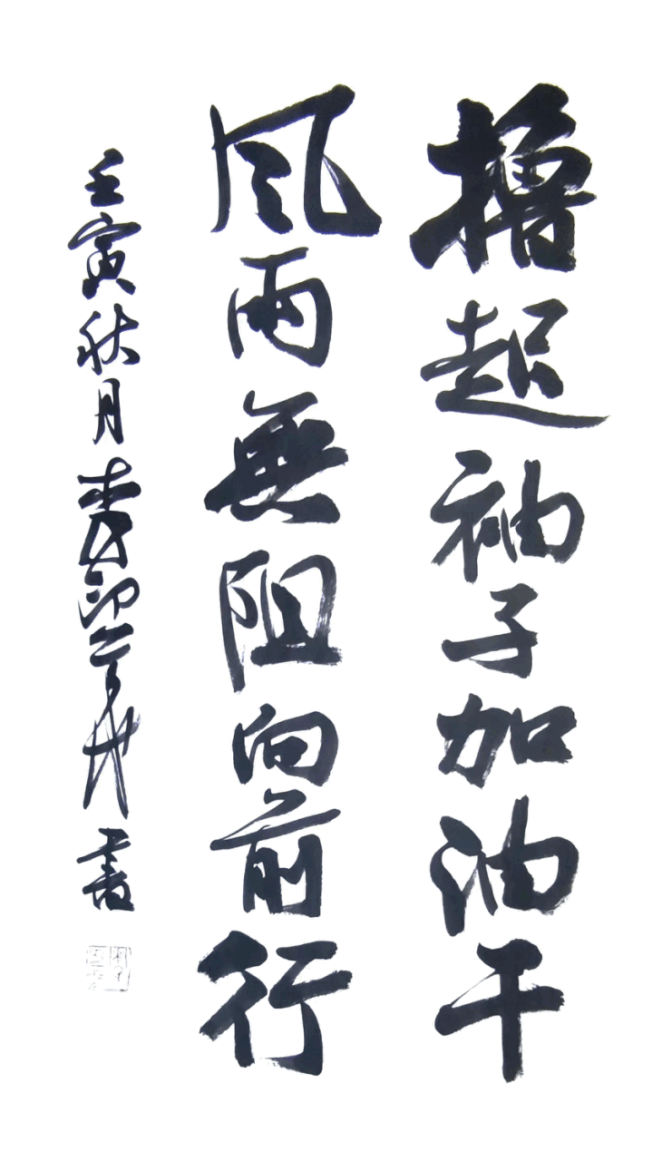 撸起袖子加油干
風雨無阻向前行
壬寅秋月
書